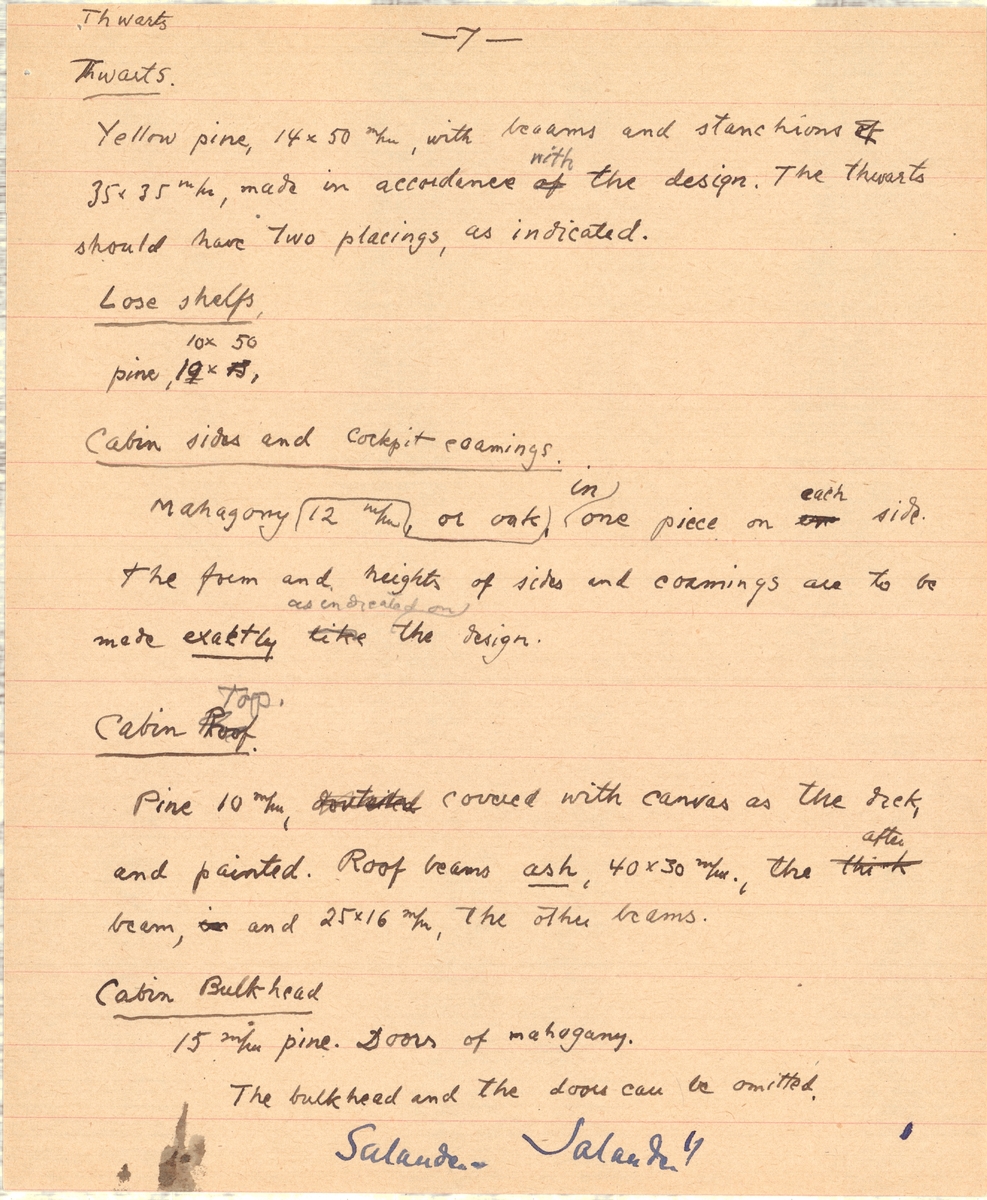 Thwarts
—7—
Thwarts.
Yellow pine, 14 x 50 m/m, with beaams and stanchions of
with
35 x 35 m/m, made in accordance of the design. The thwarts
should have two placings, as indicated.
Lose shelfs,
10 x 50
pine,
Cabin sides and cockpit coamings.
in each
Mahagony (12 m/m, or oak), one piece on side.
the form and heights of sides and coamings are to be
as indicated on
made exactly like the design.
Top.
Cabin Roof.
Pine 10 m/m, covered with canvas as the deck,
after
and painted. Roof beams ash, 40 x 30 m/m., the think
beam, in and 25 x 16 m/m, the other beams.
Cabin Bulkhead
15 m/m pine. Doors of mahagany.
The bulkhead and the doors can be omitted.